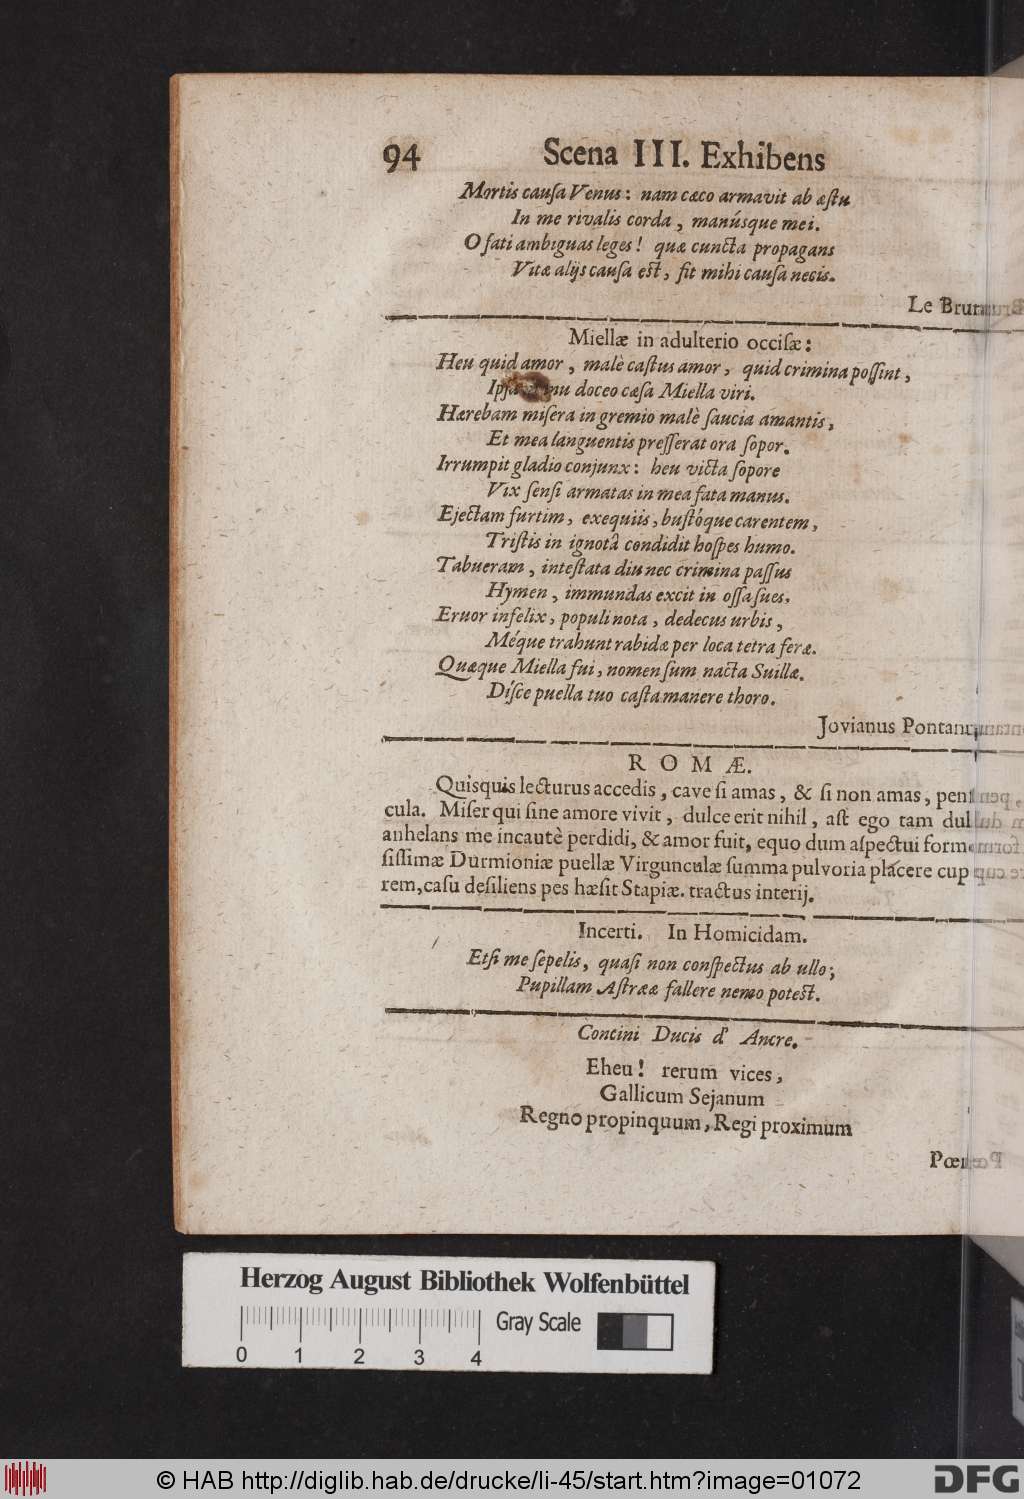 94 Scena III. Exhibens
Mortis cauſa Venus: nam cæco armavit ab æſtu
In me rivalis corda, manúsque mei.
O fati ambiguas leges! quæ cuncta propagans
Vitæ alijs cauſa eſt, fit mihi cauſa necis.
Le Brun
Miellæ in adulterio occiſæ:
Heu quid amor, malè caſtus amor, quid crimina poſſint,
doceo cæſa Miella viri.
Hærebam miſera in gremio malè ſaucia amantis,
Et mea languentis preſſerat ora ſopor.
Irrumpit gladio conjunx: heu victa ſopore
Vix ſenſi armatas in mea fata manus.
Ejectam furtim, exequiis, buſtóque carentem,
Triſtis in ignotâ condidit hoſpes humo.
Tabueram, inteſtata diu nec crimina paſſus
Hymen, immundas excit in oſſa ſues.
Eruor infelix, populi nota, dedecus urbis,
Méque trahunt rabidæ per loca tetra feræ.
Quæque Miella fui, nomen ſum nacta Suillæ.
Diſce puella tuo caſta manere thoro.
Jovianus
ROMÆ.
Quisquis lecturus accedis, cave ſi amas, & ſi non amas,
cula. Miſer qui ſine amore vivit, dulce erit nihil, aſt ego tam
anhelans me incautè perdidi, & amor fuit, equo dum aſpectui
ſiſſimæ Durmioniæ puellæ Virgunculæ ſumma pulvoria placere
rem, caſu deſiliens pes hæſit Stapiæ. tractus interij.
Incerti. In Homicidam.
Etſi me ſepelis, quaſi non conſpectus ab ullo;
Pupillam Aſtrææ fallere nemo poteſt.
Concini Ducis d' Ancre.
Eheu! rerum vices,
Gallicum Sejanum
Regno propinquum, Regi proximum
Herzog August Bibliothek Wolfenbüttel
Gray Scale
0 1 2 3 4
© HAB http://diglib.hab.de/drucke/li-45/start.htm?image=01072
DFG